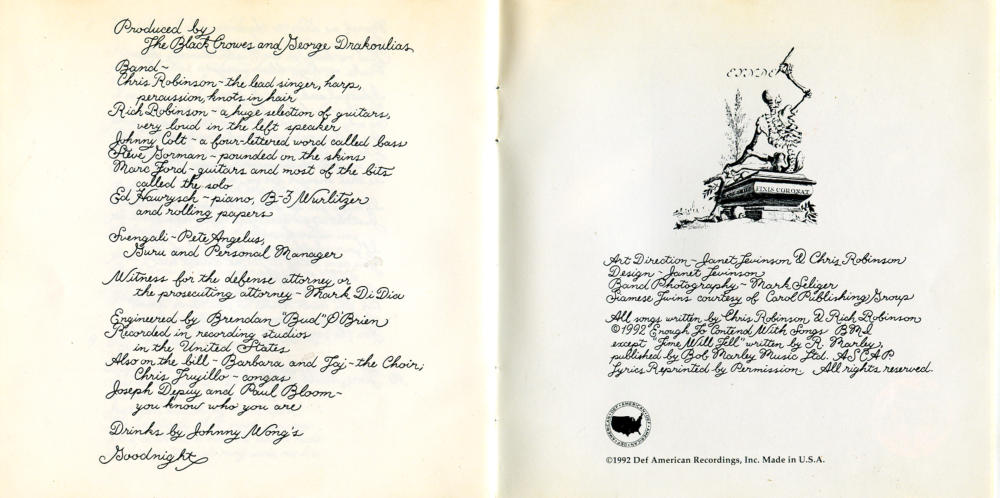 Produced by
The Black Crowes and George Drakoulias
Band~
Chris Robinson~the lead singer, harp,
percussion, knots in hair
Rich Robinson~a huge selection of guitars,
very loud in the left speaker
Johnny Colt~a four-lettered word called bass
Steve Gorman~pounded on the skins
Marc Ford~guitars and most of the bits
called the solo
Ed Hawrysch~piano, B-3 Wurlitzer
and rolling papers
Svengali~Pete Angelus,
Guru and Personal Manager
Witness for the defense attorney or
the prosecuting attorney~Mark Di Dia
Engineered by Brendan "Bud" O'Brien
Recorded in recording studios
in the United States
Also on the bill~Barbara and Taj~the Choir;
Chris Trujillo~congas
Joseph Depuy and Paul Bloom~
you know who you are
Drinks by Johnny Wong's
Goodnight
FINIS CORONAT
Art Direction~Janet Levinson & Chris Robinson
Design~Janet Levinson
Band Photography~Mark Seliger
Siamese Twins courtesy of Carol Publishing Group
All songs written by Chris Robinson & Rich Robinson
©1992 Enough To Contend With Songs BMI
except "Time Will Tell" written by R. Marley;
published by Bob Marley Music Ltd. ASCAP
Lyrics Reprinted by Permission All rights reserved.
DEF AMERICAN DEF AMERICAN
©1992 Def American Recordings, Inc. Made in U.S.A.